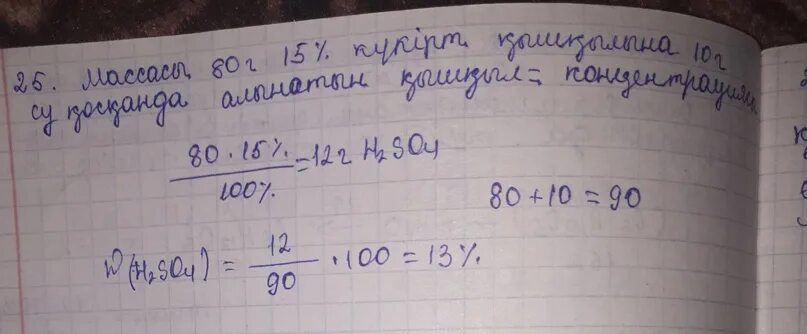 25. Массасы 80г 15% күкірт қышқылына 10г
су қосқанда алынатын қышқыл= концентрациясы
80·15%/100% =12г H₂SO₄
80+10=90
W(H₂SO₄) = 12/90 ·100=13%